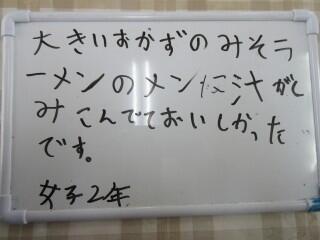 大きいおかずのみそラ
ーメンのメンに汁がし
みこんでておいしかった
です。
女子2年